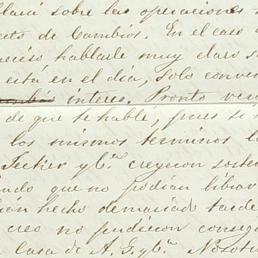 hablará sobre las operaciones
cto de Cambios. En el caso
preciso hablarle muy claro
está en el día, solo conven
interes. Pronto ven
de que te hable, pues si
los mismos terminos l
Tecker y Cª creyeron soste
iendo que no podian librar
ian hecho demasiado tarde
creo no pudieron conseg
Casa de A. G. y Cª Nosot